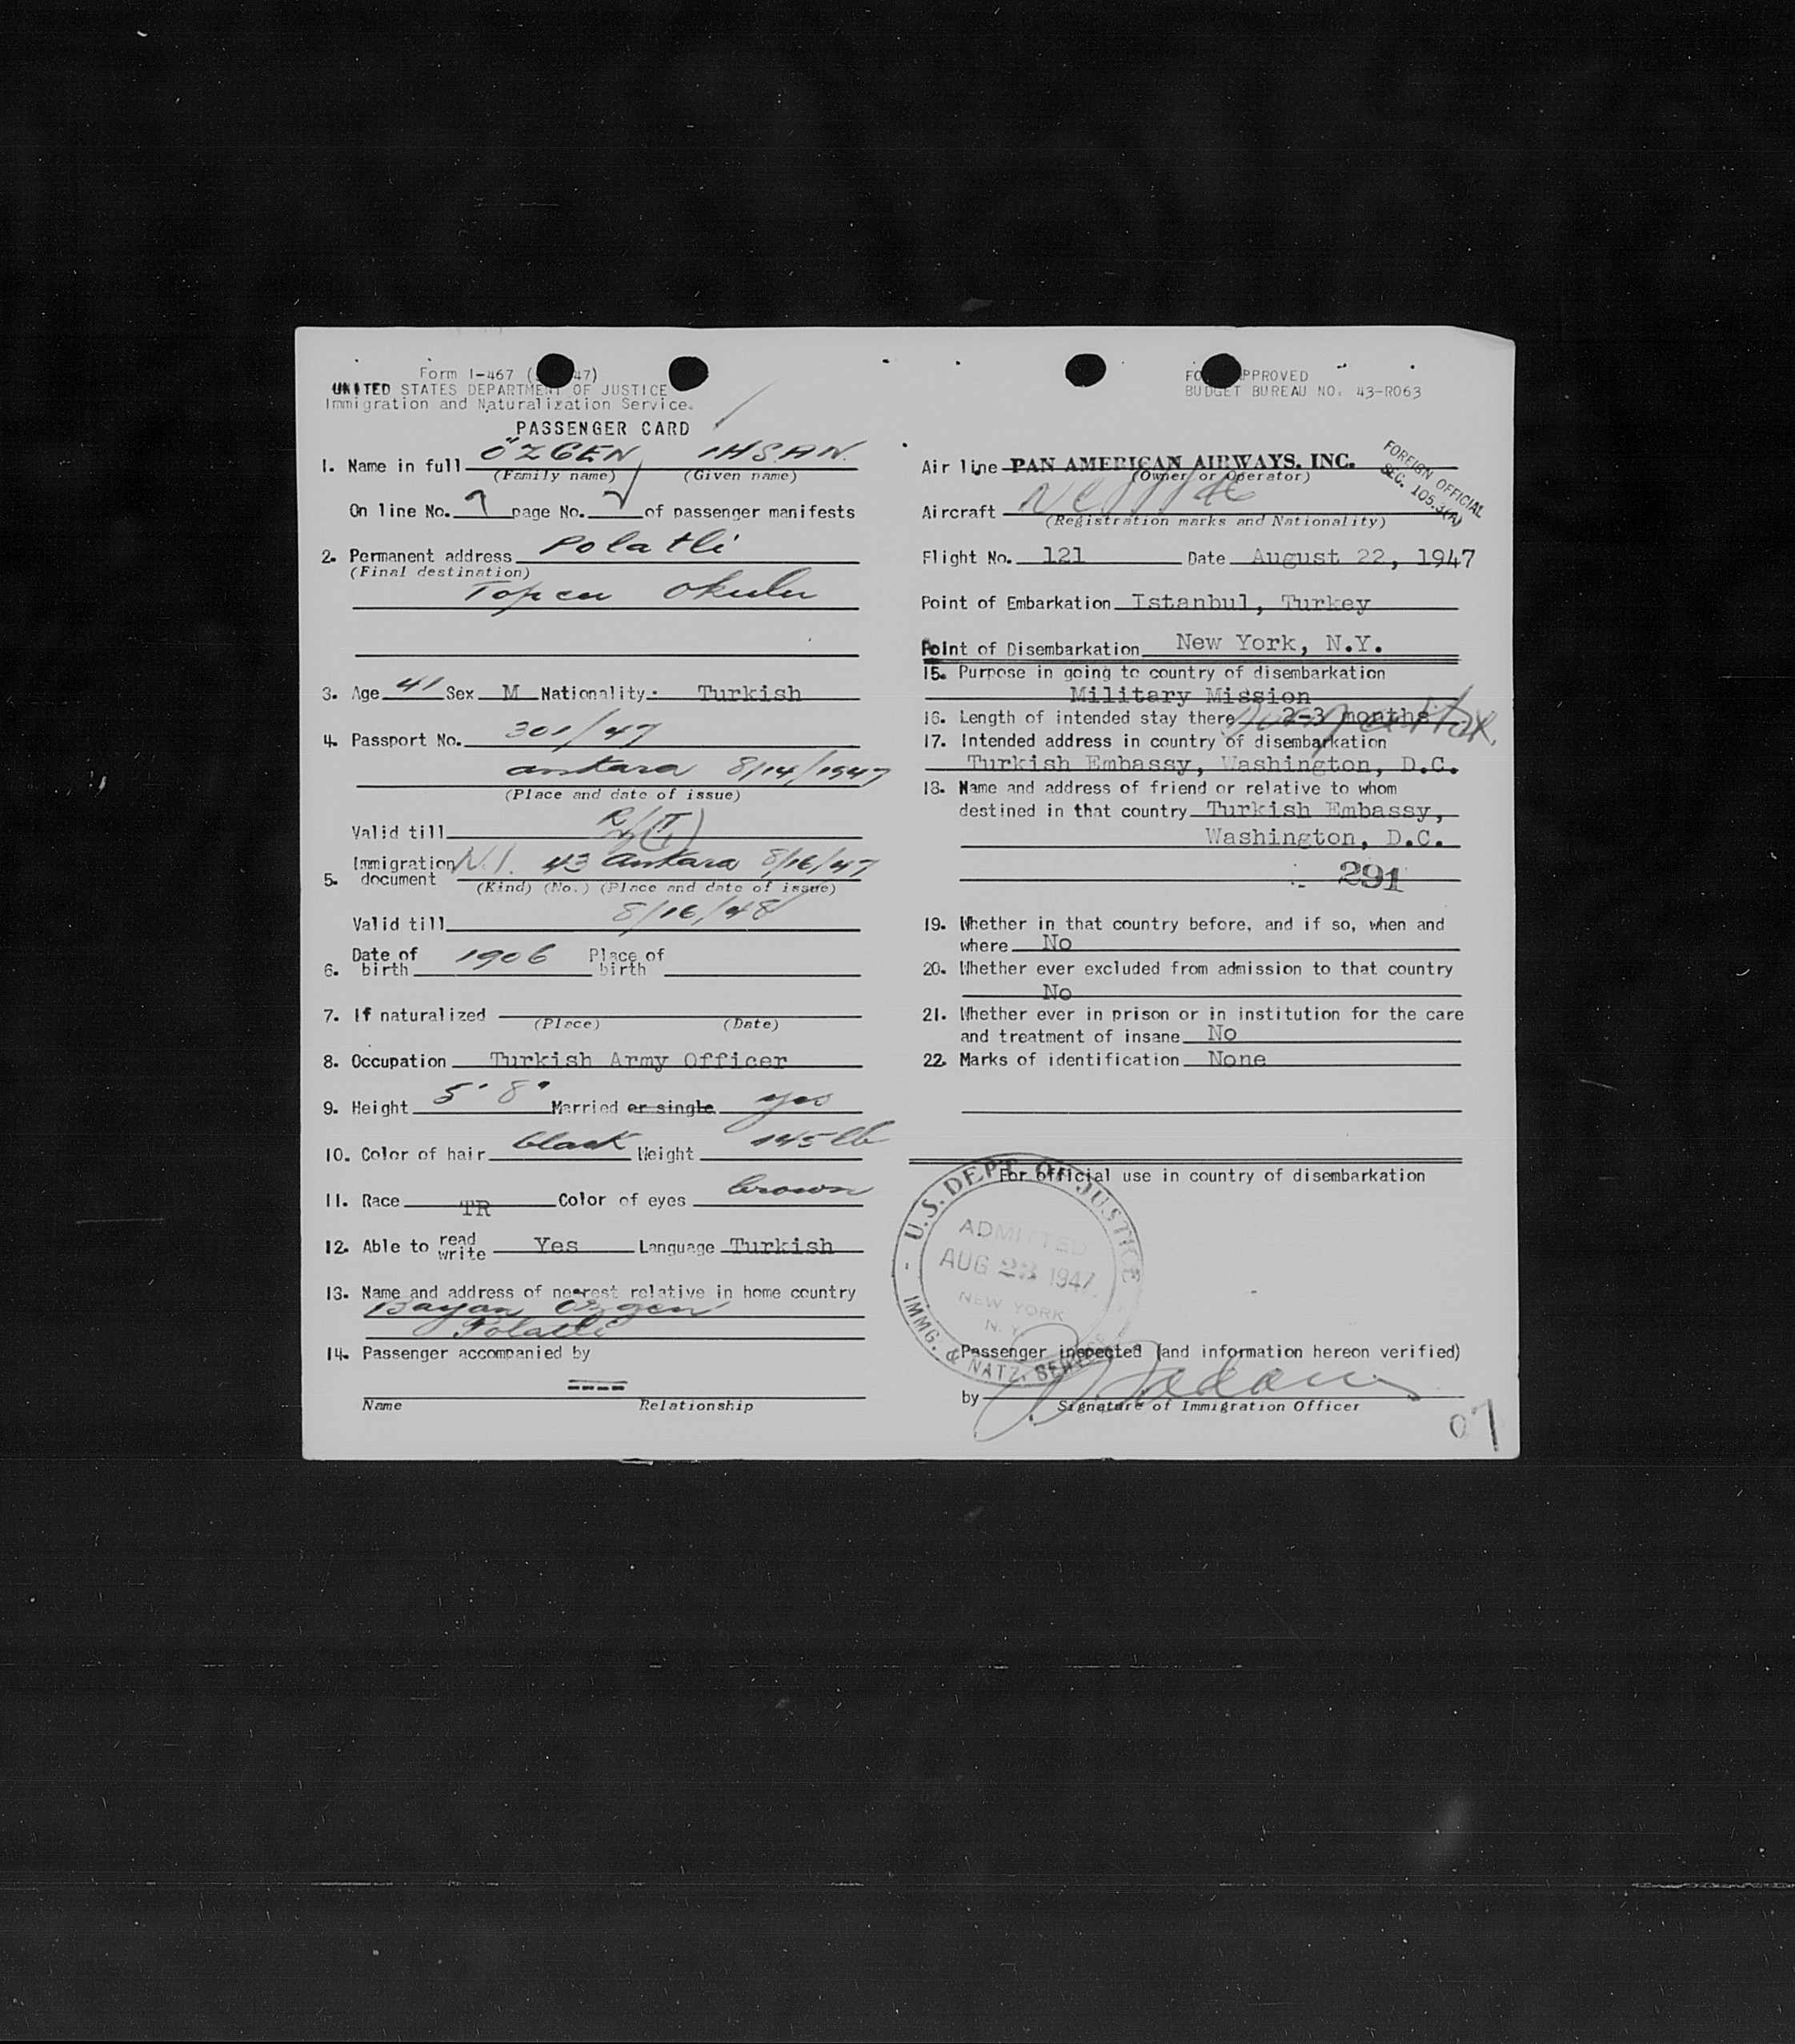 Form I-467 ( 47)
UNITED STATES DEPARTMENT OF JUSTICE
Immigration and Naturalization Service.
PASSENGER CARD
1. Name in full ÖZGEN IHSAN
(Family name) (Given name)
On line No. page No. of passenger manifests
2. Permanent address Polatli
(Final destination)
Topcu Okulu
3. Age 41 Sex M Nationality Turkish
4. Passport No. 301/47
Ankara 8/14/1947
(Place and date of issue)
Valid till
5. Immigration document N.I. 43 Ankara 8/16/47
(Kind) (No.) (Place and date of issue)
Valid till 8/16/48
6. Date of birth 1906 Place of birth
7. If naturalized
(Place) (Date)
8. Occupation Turkish Army Officer
9. Height 5' 8" Married or single yes
10. Color of hair black Weight 145 lb
11. Race TR Color of eyes brown
12. Able to read write Yes Language Turkish
13. Name and address of nearest relative in home country
Bayan Özgen
Polatli
14. Passenger accompanied by
----
Name Relationship
FORM APPROVED
BUDGET BUREAU NO. 43-R063
Air line PAN AMERICAN AIRWAYS, INC.
(Owner or Operator)
FOREIGN OFFICIAL
SEC. 105.3(A)
Aircraft
(Registration marks and Nationality)
Flight No. 121 Date August 22, 1947
Point of Embarkation Istanbul, Turkey
Point of Disembarkation New York, N.Y.
15. Purpose in going to country of disembarkation
Military Mission
16. Length of intended stay there 2-3 months
17. Intended address in country of disembarkation
Turkish Embassy, Washington, D.C.
18. Name and address of friend or relative to whom
destined in that country Turkish Embassy,
Washington, D.C.
291
19. Whether in that country before, and if so, when and
where No
20. Whether ever excluded from admission to that country
No
21. Whether ever in prison or in institution for the care
and treatment of insane No
22. Marks of identification None
For official use in country of disembarkation
U.S. DEPT. OF JUSTICE
ADMITTED
AUG 23 1947
NEW YORK
N.Y.
IMMG. & NATZ. SERVICE
Passenger inspected (and information hereon verified)
by
Signature of Immigration Officer
07